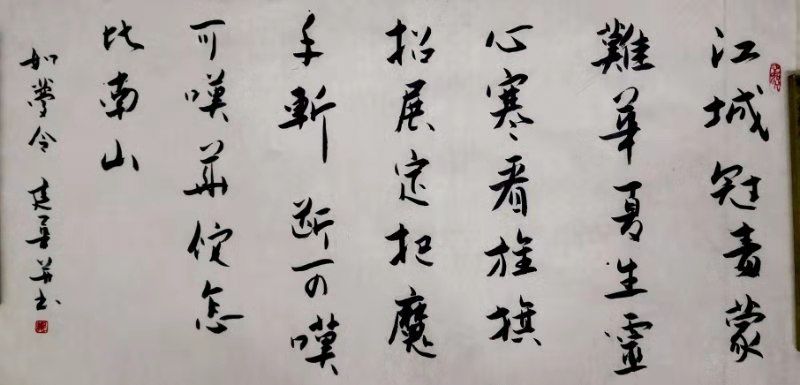 江城冠毒蒙
難華夏生靈
心寒看旌旗
招展定把魔
手斬断可嘆
可嘆華佗怎
比南山
如夢令 并书